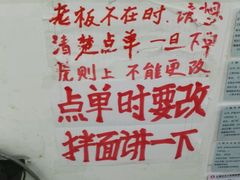 老板不在时，请想
清楚点单一旦下单
原则上 不能更改
点单时要改
拌面讲一下